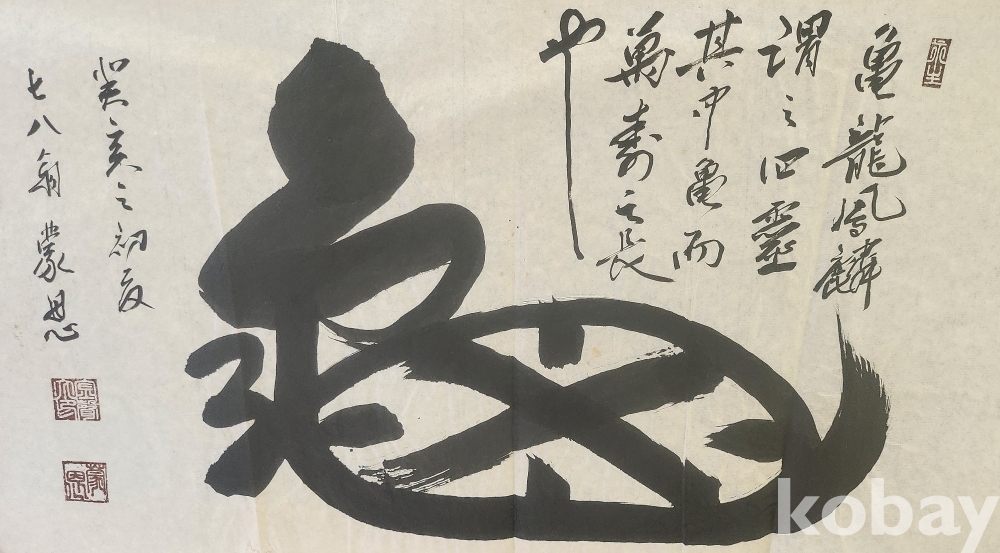 亀龍鳳麟
謂之四靈
其中亀而
萬壽之長
也
龜
癸亥之初夏
七八翁 蒙恩
kobay